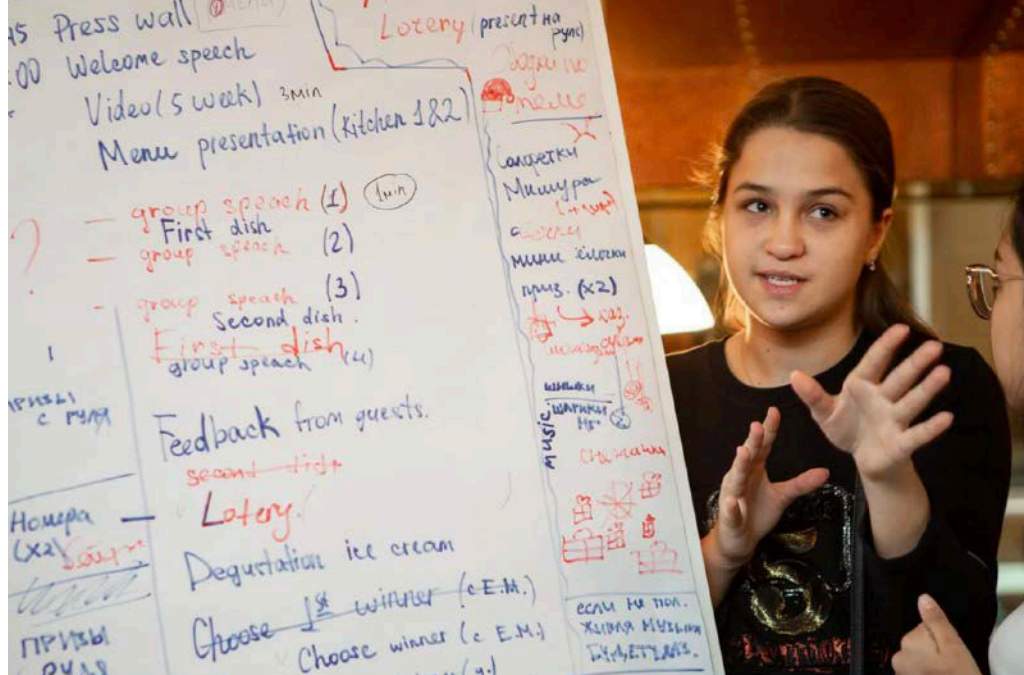 45 Press wall
:00 Welcome speech
Video (5 week) 3min
Menu presentation (Kitchen 1&2)
? — group speach (1) 1min
First dish
— group speach (2)
- group speach (3)
Second dish.
First dish
group speach (4)
Feedback from guests.
second dish
Lotery.
Degustation ice cream
Choose 1st winner (с Е.М.)
Choose winner (с Е.М.)
1
ПРИЗЫ
С РУЛЯ
Номера
(x2)
ПРИЗЫ
РУЛЯ
Lotery (present на
руле)
Салфетки
Мишура
мини ёлочки
приз. (x2)
шишки
шарики
music
снежинки
если не пол.
живая музыка